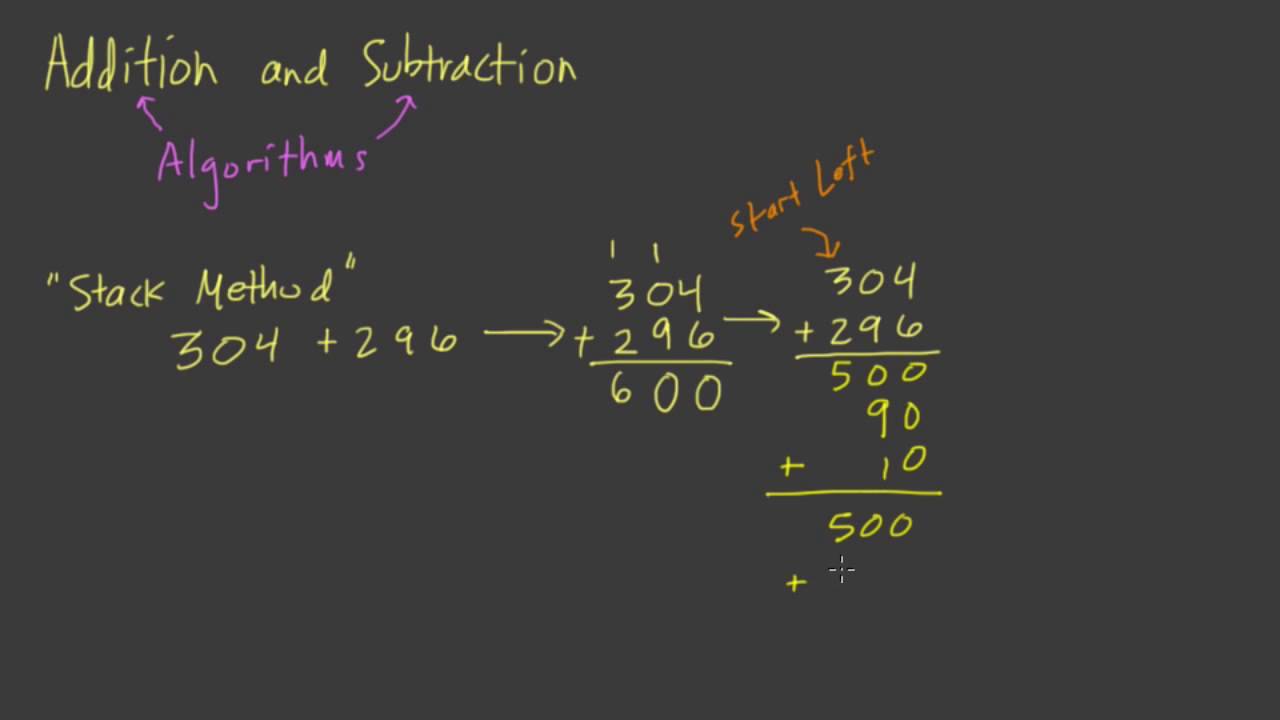 Addition and Subtraction
Algorithms
Start Left
"Stack Method"
304 + 296 →
1 1
304
+ 296
600
→
304
+ 296
500
90
+ 10
500
+